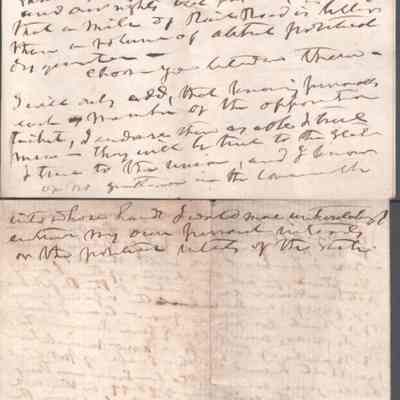 and our rights
that a mile of Rail Road is better
than a volume of political
choose you between them —
I will only add, that knowing personally
each member of the opposition
ticket, I endorse them as able & true
men — they will be true to the State
& true to the Union, and I know
of no gentlemen in the
into whose hands I would more
entrust my own personal interests
or the political interests of the State.